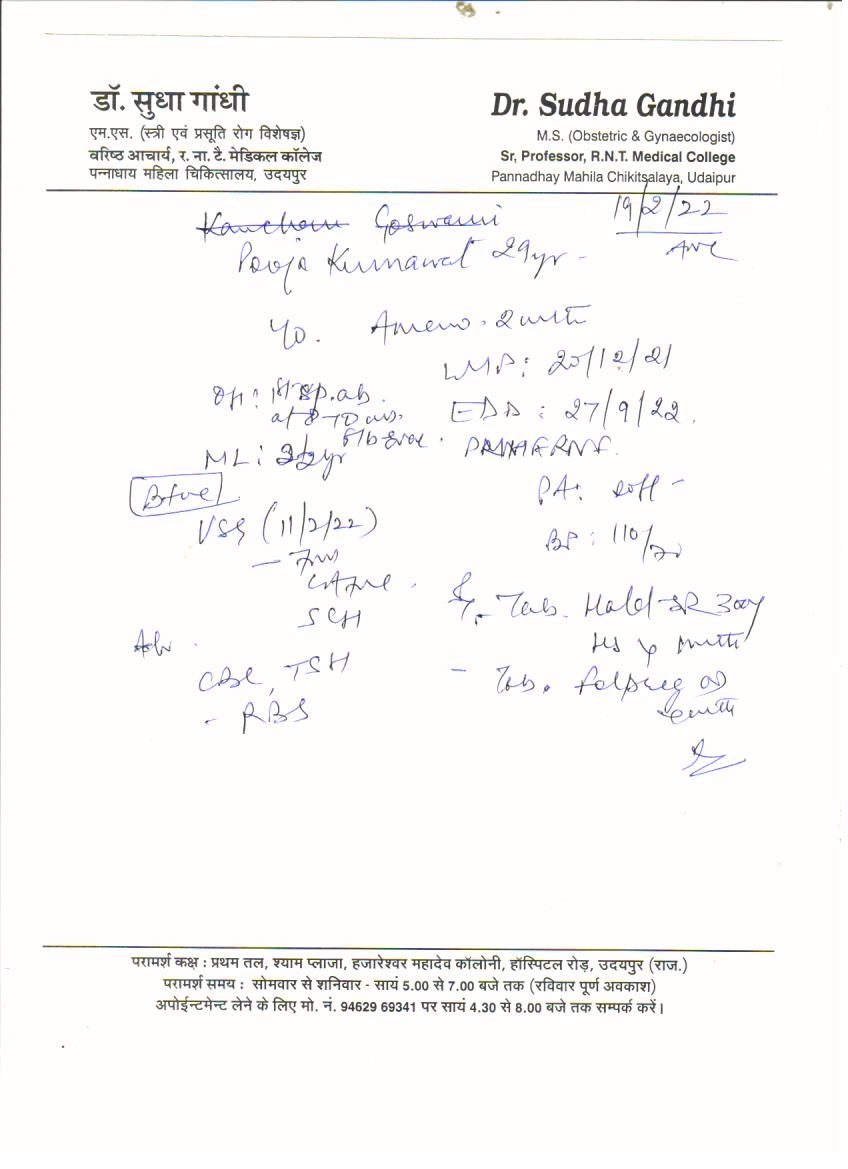 डॉ. सुधा गांधी
एम.एस. (स्त्री एवं प्रसूति रोग विशेषज्ञ)
वरिष्ठ आचार्य, र. ना. टै. मेडिकल कॉलेज
पन्नाधाय महिला चिकित्सालय, उदयपुर
Dr. Sudha Gandhi
M.S. (Obstetric & Gynaecologist)
Sr, Professor, R.N.T. Medical College
Pannadhay Mahila Chikitsalaya, Udaipur
19/2/22
ANC
Goswami
Pooja Kumawat 29yr -
Ameno. 2 mth
LMP: 20/12/21
OH: 1st sp.ab.
at 8-10 wks.
EDD: 27/9/22.
ML:
B+ve
PA: soft -
USG (11/2/22)
BP: 110/70
SCH
Tab.
Adv.
HS
CBC, TSH
- Tab. Folpreg OD
- RBS
परामर्श कक्ष : प्रथम तल, श्याम प्लाजा, हजारेश्वर महादेव कॉलोनी, हॉस्पिटल रोड़, उदयपुर (राज.)
परामर्श समय : सोमवार से शनिवार - सायं 5.00 से 7.00 बजे तक (रविवार पूर्ण अवकाश)
अपोईन्टमेन्ट लेने के लिए मो. नं. 94629 69341 पर सायं 4.30 से 8.00 बजे तक सम्पर्क करें।